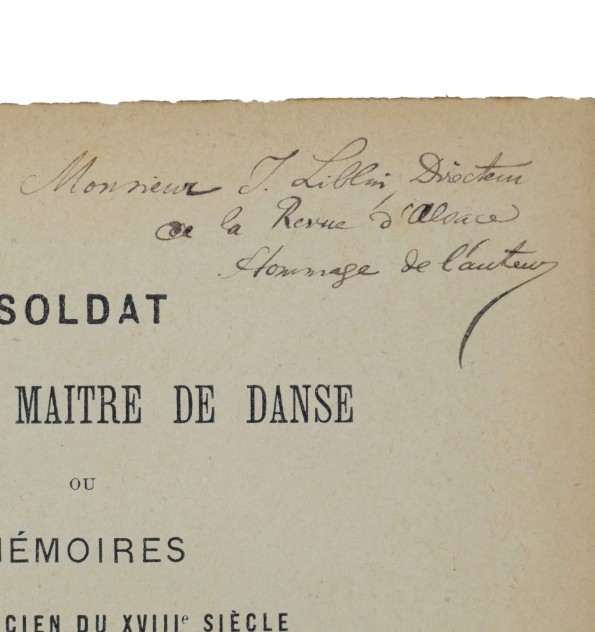 Monsieur J. Liblin, Directeur
de la Revue d'Alsace
Hommage de l'auteur
SOLDAT
MAITRE DE DANSE
OU
MÉMOIRES
CIEN DU XVIIIe SIÈCLE